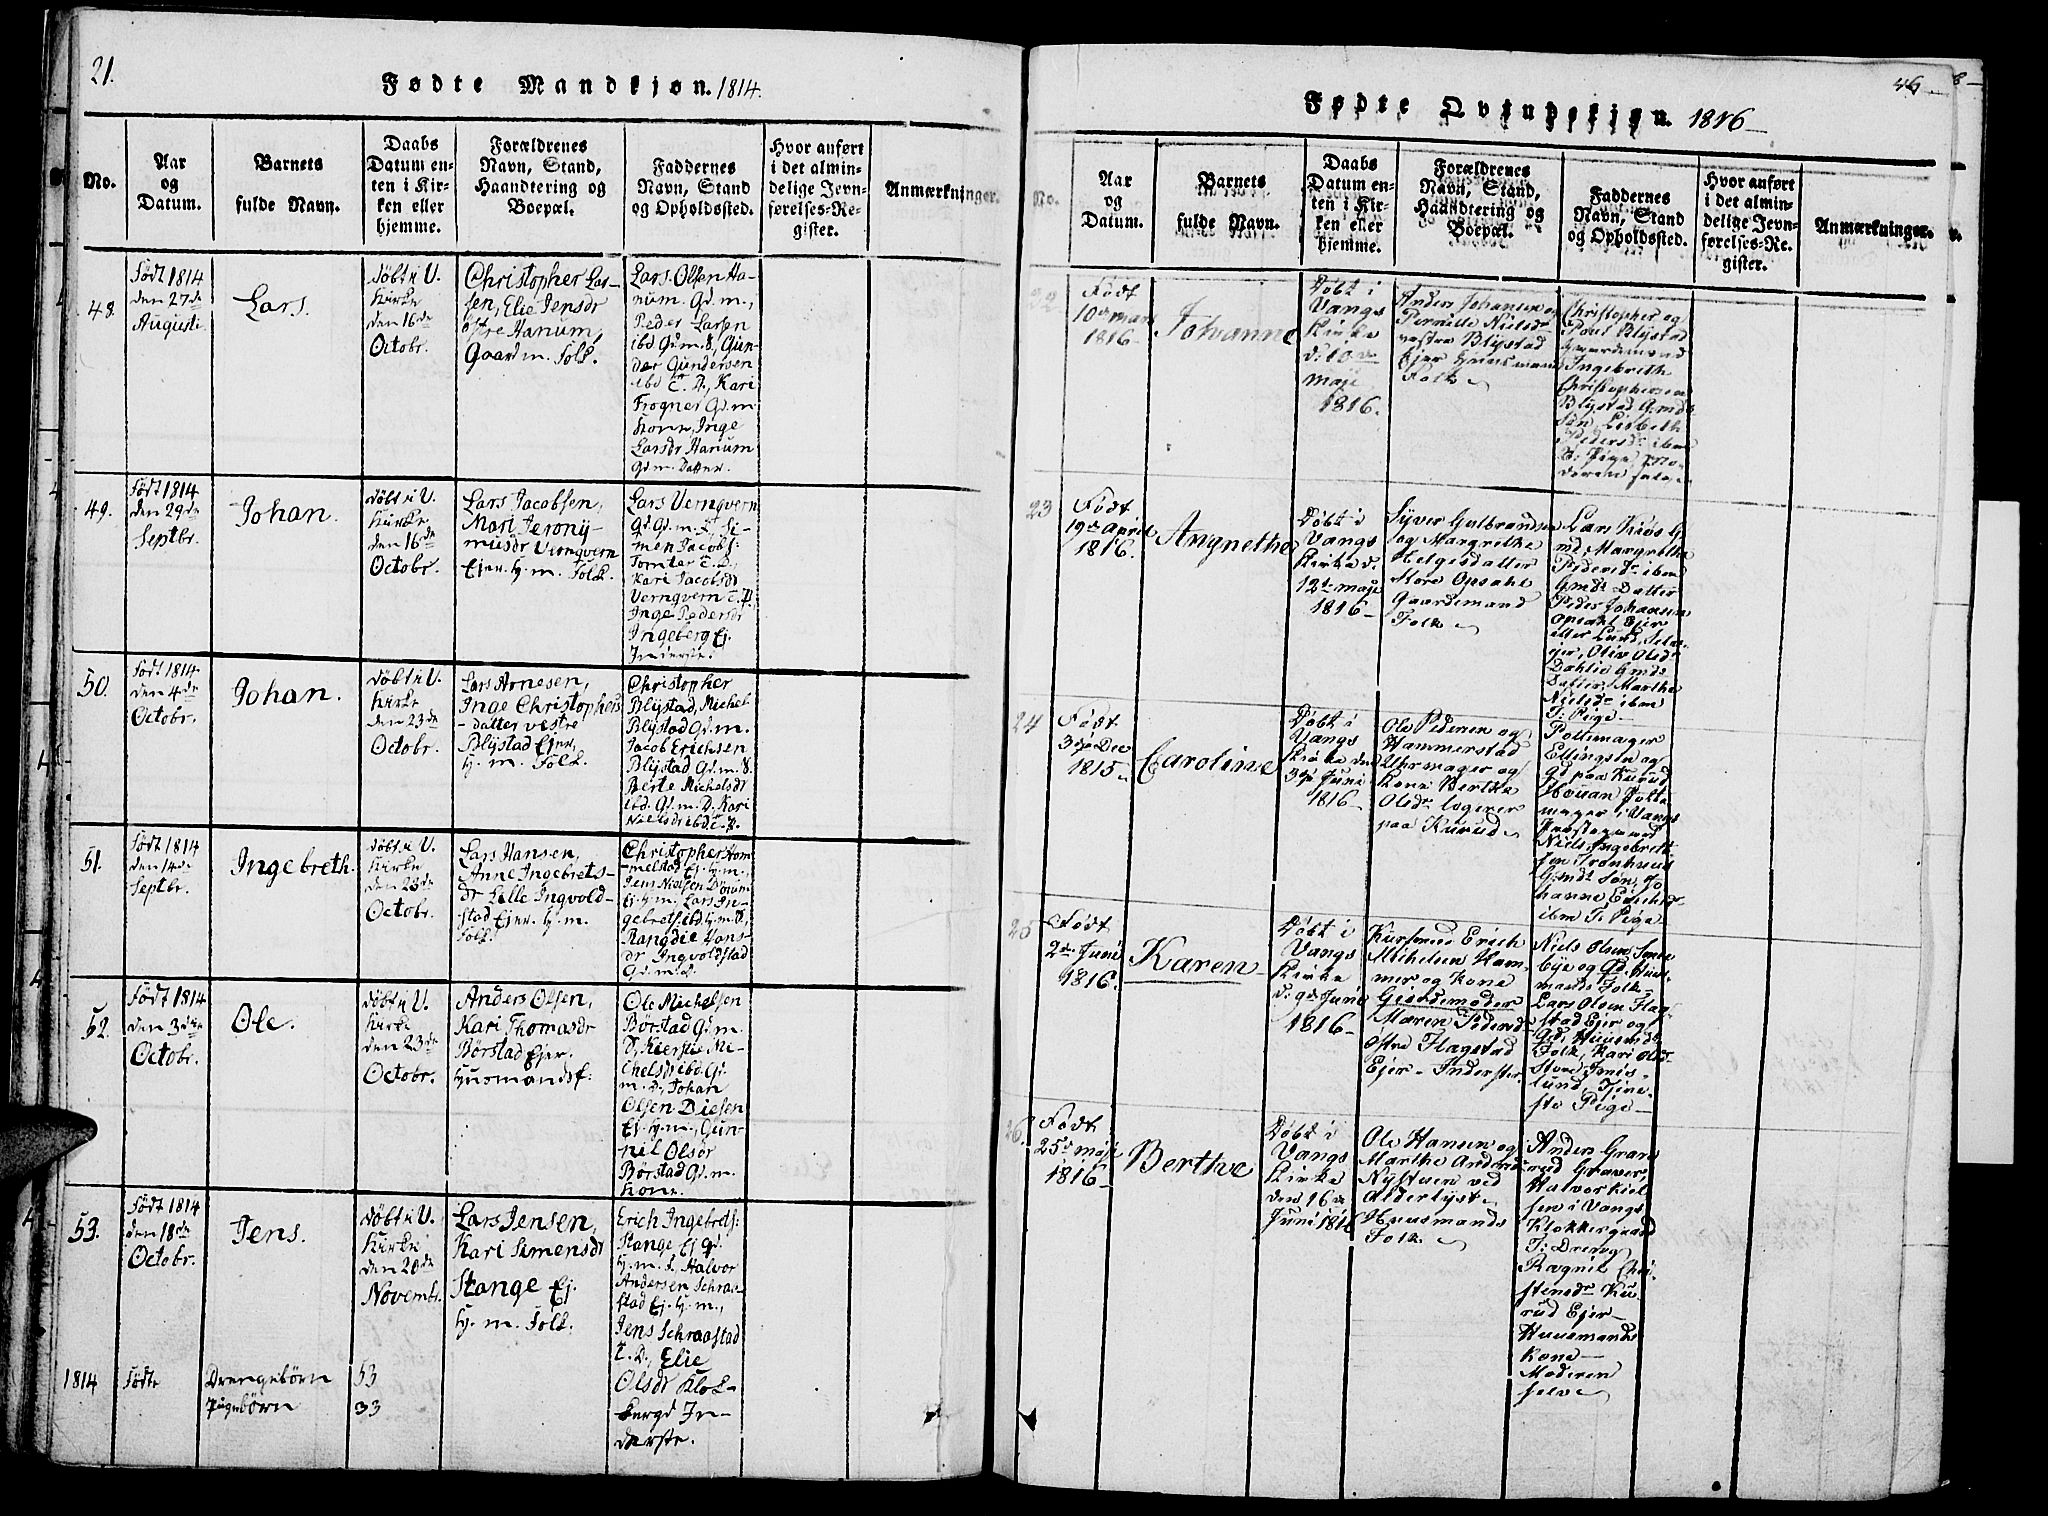 21.
Fødte Mandkjøn. 1814.
No.
Aar
og
Datum.
Barnets
fulde Navn.
Daabs
Datum en-
ten i Kir-
ken eller
hjemme.
Forældrenes
Navn, Stand,
Haandtering og
Boepæl.
Faddernes
Navn, Stand
og Opholdssted.
Hvor anført
i det almin-
delige Jevn-
førelses-Re-
gister.
Anmærkninger.
48.
Født 1814
den 27de
Augusti
Lars.
døbt i V.
Kirke
den 16de
Octobr.
Christopher Lar-
sen, Elie Jensdr
östre Hanum,
Gaardm. Folk.
Lars Olsen Ha-
num. Gd. m.,
Peder Larsen
ibd Gd. m. S., Gun-
der Gundersen
ibd T. D., Kari
Frogner Gd. m
Kone, Inge
Larsdr Hanum
Gd. m. Datter.
49.
Født 1814
den 29de
Septbr.
Johan.
døbt i V.
Kirke
den 16de
Octobr.
Lars Jacobsen,
Mari Jerony-
musdr Vernqvern
Ejer. H. m. Folk.
Lars Vernqvern
Gd. m. Si-
men Jacobs:
Tomter T. D.,
Kari Jacobsdr
Vernqvern T. P.,
Inge Pedersdr
Ingeberg Ej.
Inderste.
50.
Født 1814
den 4de
Octobr.
Johan.
døbt i V.
Kirke
den 23de
Octobr.
Lars Arnesen,
Inge Christophers
- datter vestre
Blystad Ejer,
H. m. Folk.
Christopher
Blystad, Michel
Blystad Gd. m.
Jacob Erichsen
Blystad Gd. m. S.
Berte Michelsdr
ibd. Gd. m. D. Kari
Nielsdr ibd. T. P.
51.
Født 1814
den 14de
Septbr.
Ingebreth.
døbt i V.
Kirke
den 23de
Octobr.
Lars Hansen,
Anne Ingebrets-
dr Lille Ingvold-
stad Ejer. H. m.
Folk.
Christopher Hom
-melstad Ej. H. m.,
Jens Nielsen Dørum
Ej. H. m. Lars In-
gebrets. ibd. H. m. S,
Rangdie Hans-
dr Ingvoldstad
Gd. m. D.
52.
Født 1814
den 3die
Octobr.
Ole.
døbt i V.
Kirke
den 23de
Octobr.
Anders Olsen,
Kari Thomasdr
Börstad Ejer.
Husmandsf:
Ole Michelsen
Börstad Gd. m.
S, Kierstie Mi-
chelsdr ibd. Gd.
m. D., Johan
Olsen Diesen
Ej. H. m., Gun-
nel Olsdr
Börstad Gd. m.
Kone.
53.
Født 1814
den 18de
Octobr.
Jens.
døbt i V.
Kirke
den 20de
Novembr.
Lars Jensen,
Kari Simensdr
Stange Ej.
H. m. Folk.
Erich Ingebrets:
Stange Ej Gd.
H. m. S, Halvor
Andersen Schraa-
stad Ej. H. m.,
Jens Schraastad
T. D., Elie
Olsdr Klok-
bergd In-
derste.
1814 Födte Drengebörn 53
Pigebörn 33
46
Fødte Qvindekjøn. 1816
No.
Aar
og
Datum.
Barnets
fulde Navn.
Daabs
Datum en-
ten i Kir-
ken eller
hjemme.
Forældrenes
Navn, Stand,
Haandtering og
Boepæl.
Faddernes
Navn, Stand
og Opholdssted.
Hvor anført
i det almin-
delige Jevn-
førelses-Re-
gister.
Anmærkninger.
22
Født
10de mars
1816
Johanne
Døbt i
Vangs
Kirke
d: 10de
maji
1816.
Anders Johansen og
Pernille Nielsdr
vestre Blystad
Ejer Huusmand
Folk
Christopher og
Poul Blystad
Gaardmænd
Ingebreth
Christophersen
Blystad Gmds
Søn, Lisbeth
Pedersdr ibm
T: Pige Mo-
deren selv
23
Født
19de April
1816.
Angnethe
Døbt i
Vangs
Kirke d.
12te maji
1816
Syver Gulbrandsen
og Margrethe
Helgesdatter
Store Opsahl
Gaardemand
Folk
Lars Kiøs G
md, Margrethe
Pedersdr ibm
Gmds Datter
Peder Johansen
Opsahl Ejer
Dahlie Gmds
Datter, Marthe
Nielsdr ibm
T: Pige
24
Født
31te Dec
1815
Caroline
Døbt i
Vangs
Kirke den
3die Juni
1816
Ole Pedersen og
Hammerstad
Uhrmager og
Kone Berthe
Olsdr logerer
paa Kurud
Pottemager
Ellingsen og
Gd paa Kurud
Potte
mager i Vangs
Præstegaard
Niels Ingebreth-
sen Tronhuus
Gmds Søn, Jo
hanne Erichsdr
ibm T: Pige
25
Født
2den Juni
1816.
Karen
Døbt i
Vangs
Kirke
d: 9de Juni
1816
Kursmed Erich
Mihelsen Ham-
mer og Kone
Giordemoder
Maren Pedersdr
Østre Flagstad
Ejer-Inderster.
Niels Olsen Smee
bye og Gd. Huus-
mands Folk
Lars Olsen Flag-
stad Ejer og
Gd. Huusmds
Folk, Kari Olsdr
Store Imis-
lund, Tjene-
ste Pige
26
Født
25de maji
1816
Berthe
Døbt i
Vangs
Kirke
den 16de
Juni 1816
Ole Hansen og
Marthe Andersdr
Nystuen ved
Alderlyst
Huusmands
Folk
Anders Grave
rud Graver,
Halvor Kiel
sen i Vangs
Klokkergaard
T: Dreng
Ragnil Chri-
stensdr Ku-
rud Ejer
Huusmands
Kone
Moderen
selv